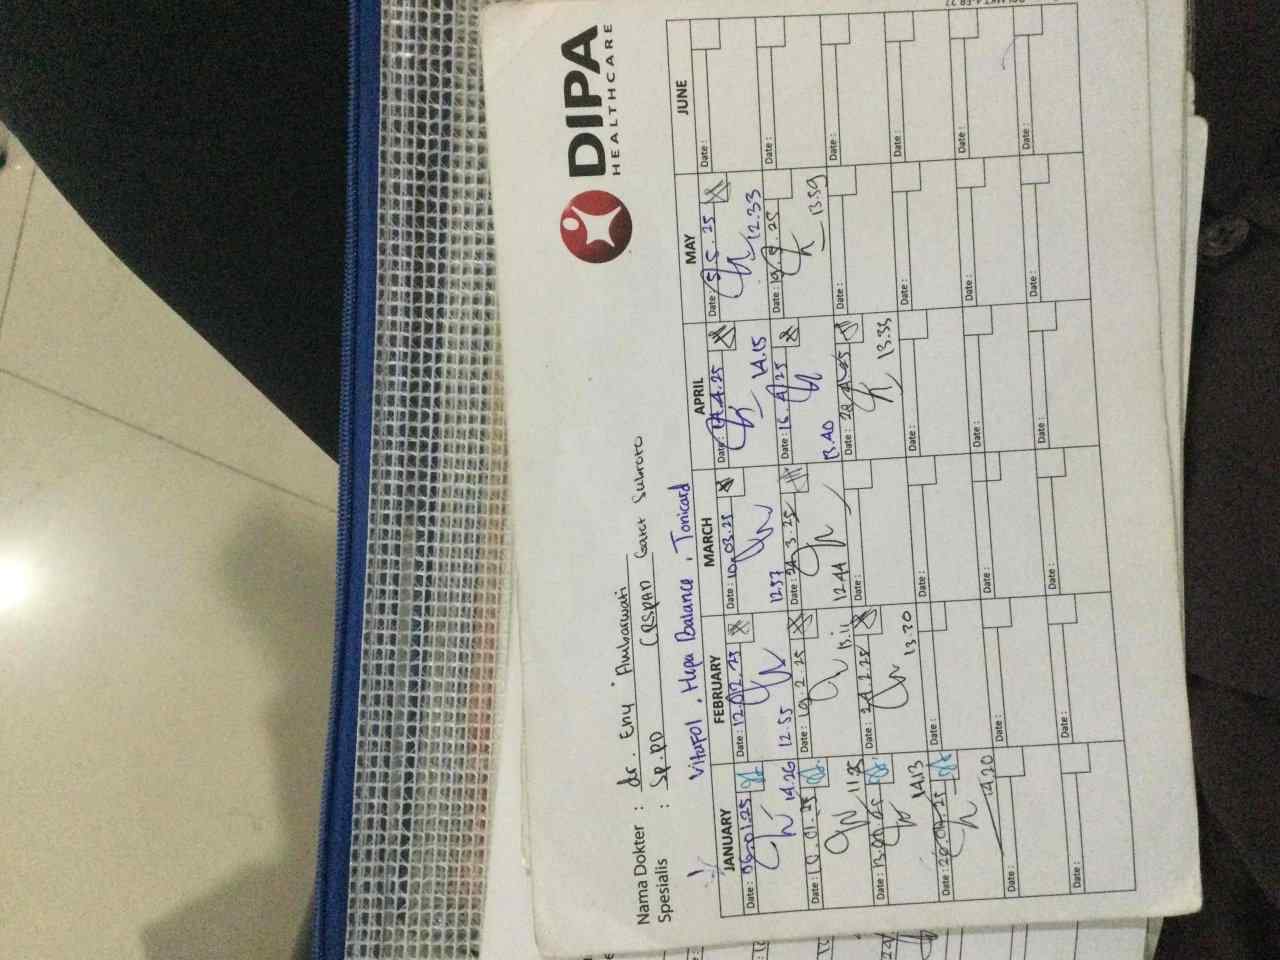 DIPA
HEALTHCARE
Nama Dokter : dr. Eny Ambarwati
Spesialis : Sp.PD (RSPAD Gatot Subroto
Vitafol, Hepa Balance, Tonicard
JANUARY FEBRUARY MARCH APRIL MAY JUNE
Date: 06.01.25 Date: 12.02.25 Date: 10.03.25 Date: 14.4.25 Date: 5.5.25 Date:
14.26 12.55 12.57 14.15 12.33
Date: 10.01.25 Date: 19.2.25 Date: 24.3.25 Date: 16.4.25 Date: 19.5.25 Date:
11.25 13.11 12.44 13.40 13.59
Date: 13.01.25 Date: 24.2.25 Date: Date: 22.4.25 Date: Date:
14.13 13.20 13.33
Date: 20.01.25 Date: Date: Date: Date: Date:
14.20
Date: Date: Date: Date: Date: Date:
Date: Date: Date: Date: Date: Date: